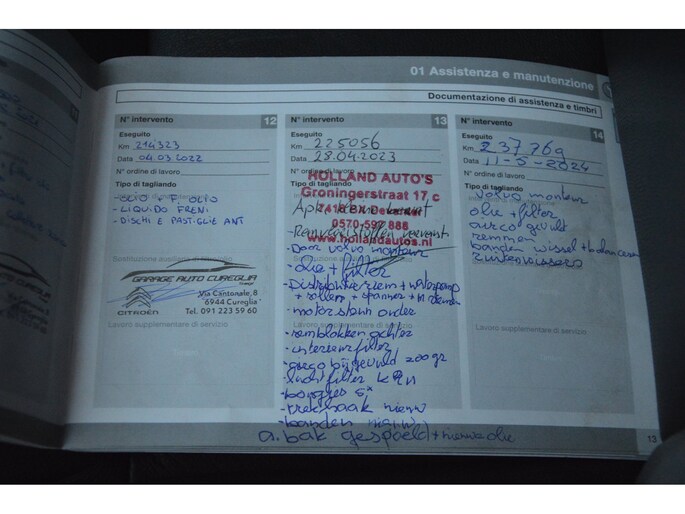 01 Assistenza e manutenzione
Documentazione di assistenza e timbri
N° intervento 12
Eseguito
Km 214323
Data 04.03.2022
N° ordine di lavoro
Tipo di tagliando
- OLIO + F. OLIO
- LIQUIDO FRENI
- DISCHI E PASTIGLIE ANT
GARAGE AUTO CUREGLIA
CITROËN
Via Cantonale, 8
6944 Cureglia
Tel. 091 223 59 60
Lavoro supplementare di servizio
N° intervento 13
Eseguito
Km 225056
Data 28.04.2023
N° ordine di lavoro
HOLLAND AUTO'S
Groningerstraat 17 c
Deventer
0570-597 888
www.hollandautos.nl
- Door volvo monteur
- olie + filter
- Distributieriem + waterpomp
+ rollen + spanner + riemen
- motorsteun onder
- remblokken achter
- interieurfilter
- airco bijgevuld 200 gr
- luchtfilter k&n
- bougies 5x
- trekhaak nieuw
- banden nieuw
a. bak gespoeld + nieuwe olie
N° intervento 14
Eseguito
Km 237769
Data 11-5-2024
N° ordine di lavoro
Tipo di tagliando
volvo monteur
olie + filter
airco gevult
remmen
banden wissel + balanceren
ruitenwissers
Lavoro supplementare di servizio
13